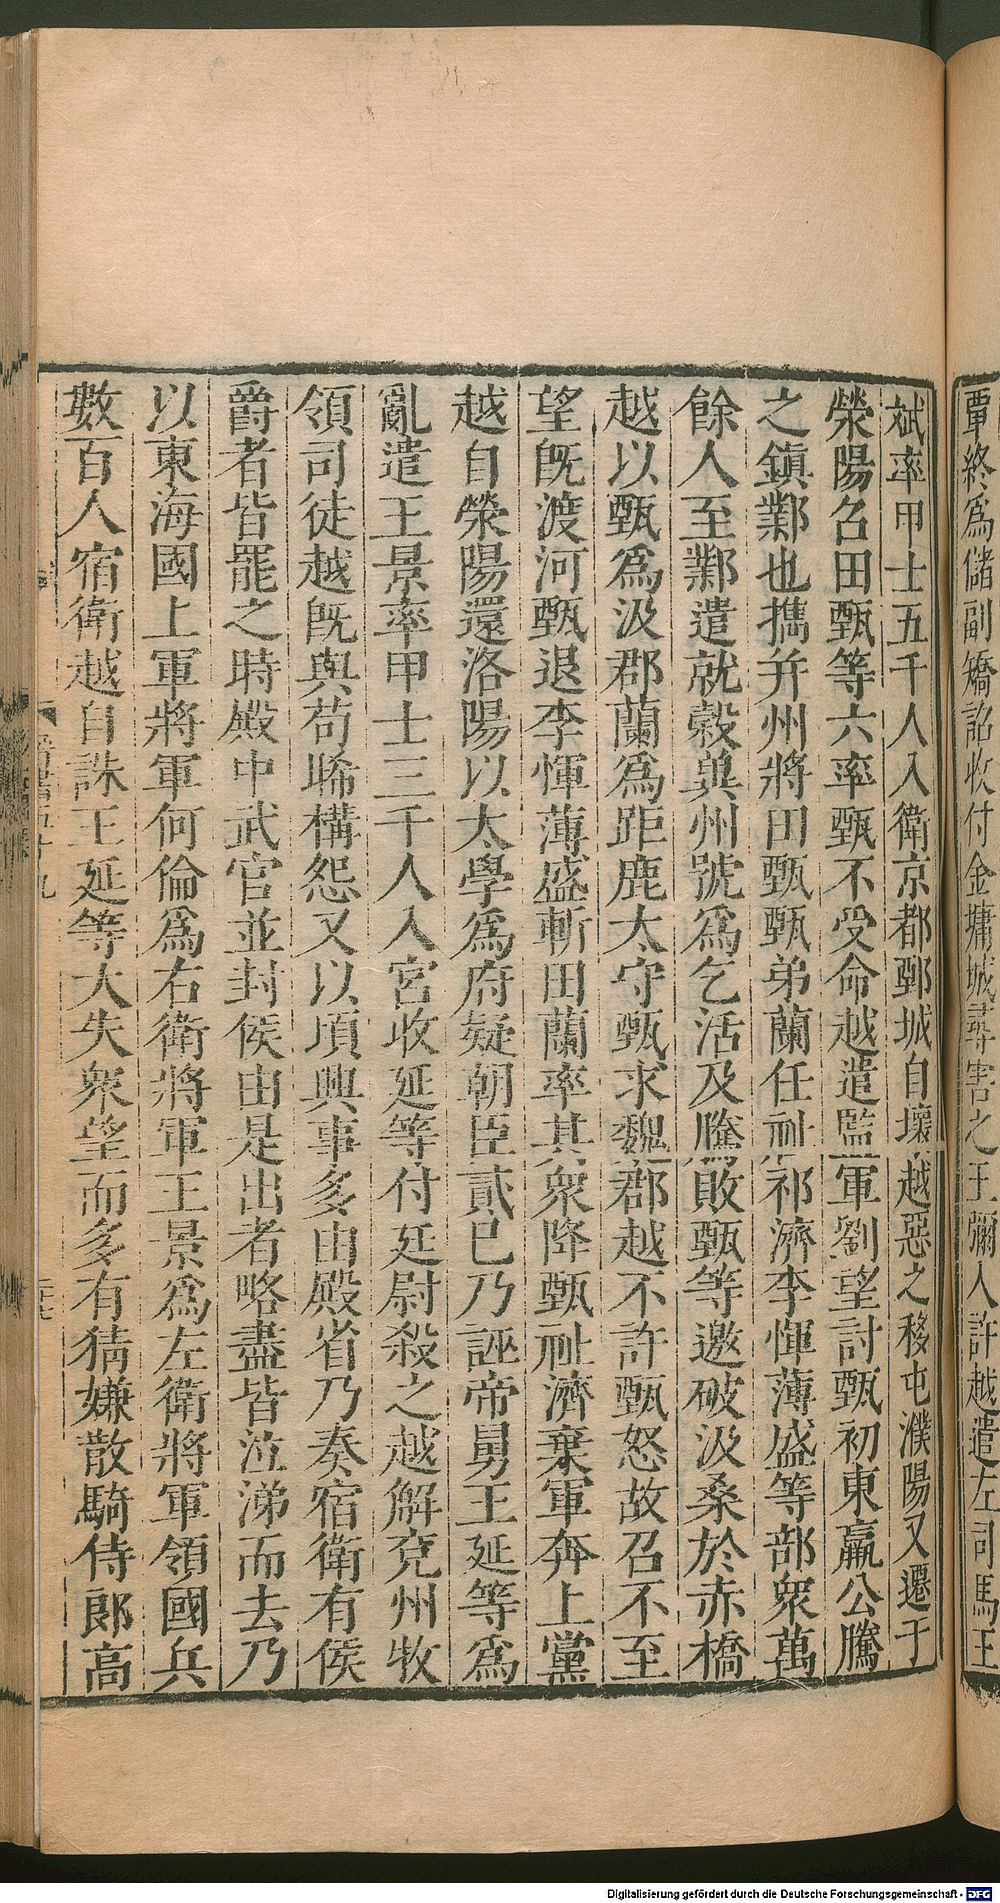 覃終爲儲副矯詔收付金墉城尋害之王彌入許越遣左司馬王
斌率甲士五千人入衞京都鄄城自壞越惡之移屯濮陽又遷于
滎陽召田甄等六率甄不受命越遣監軍劉望討甄初東嬴公騰
之鎮鄴也攜并州將田甄甄弟蘭任祉祁濟李惲薄盛等部衆萬
餘人至鄴遣就穀兾州號爲乞活及騰敗甄等邀破汲桑於赤橋
越以甄爲汲郡蘭爲距鹿太守甄求魏郡越不許甄怒故召不至
望旣渡河甄退李惲薄盛斬田蘭率其衆降甄祉濟棄軍奔上黨
越自滎陽還洛陽以太學爲府疑朝臣貳已乃誣帝舅王延等爲
亂遣王景率甲士三千人入宮收延等付廷尉殺之越解兗州牧
領司徒越旣與苟晞構怨又以頃興事多由殿省乃奏宿衞有侯
爵者皆罷之時殿中武官並封侯由是出者略盡皆泣涕而去乃
以東海國上軍將軍何倫爲右衞將軍王景爲左衞將軍領國兵
數百人宿衞越自誅王延等大失衆望而多有猜嫌散騎侍郎高
晉書五十九
Digitalisierung gefördert durch die Deutsche Forschungsgemeinschaft - DFG